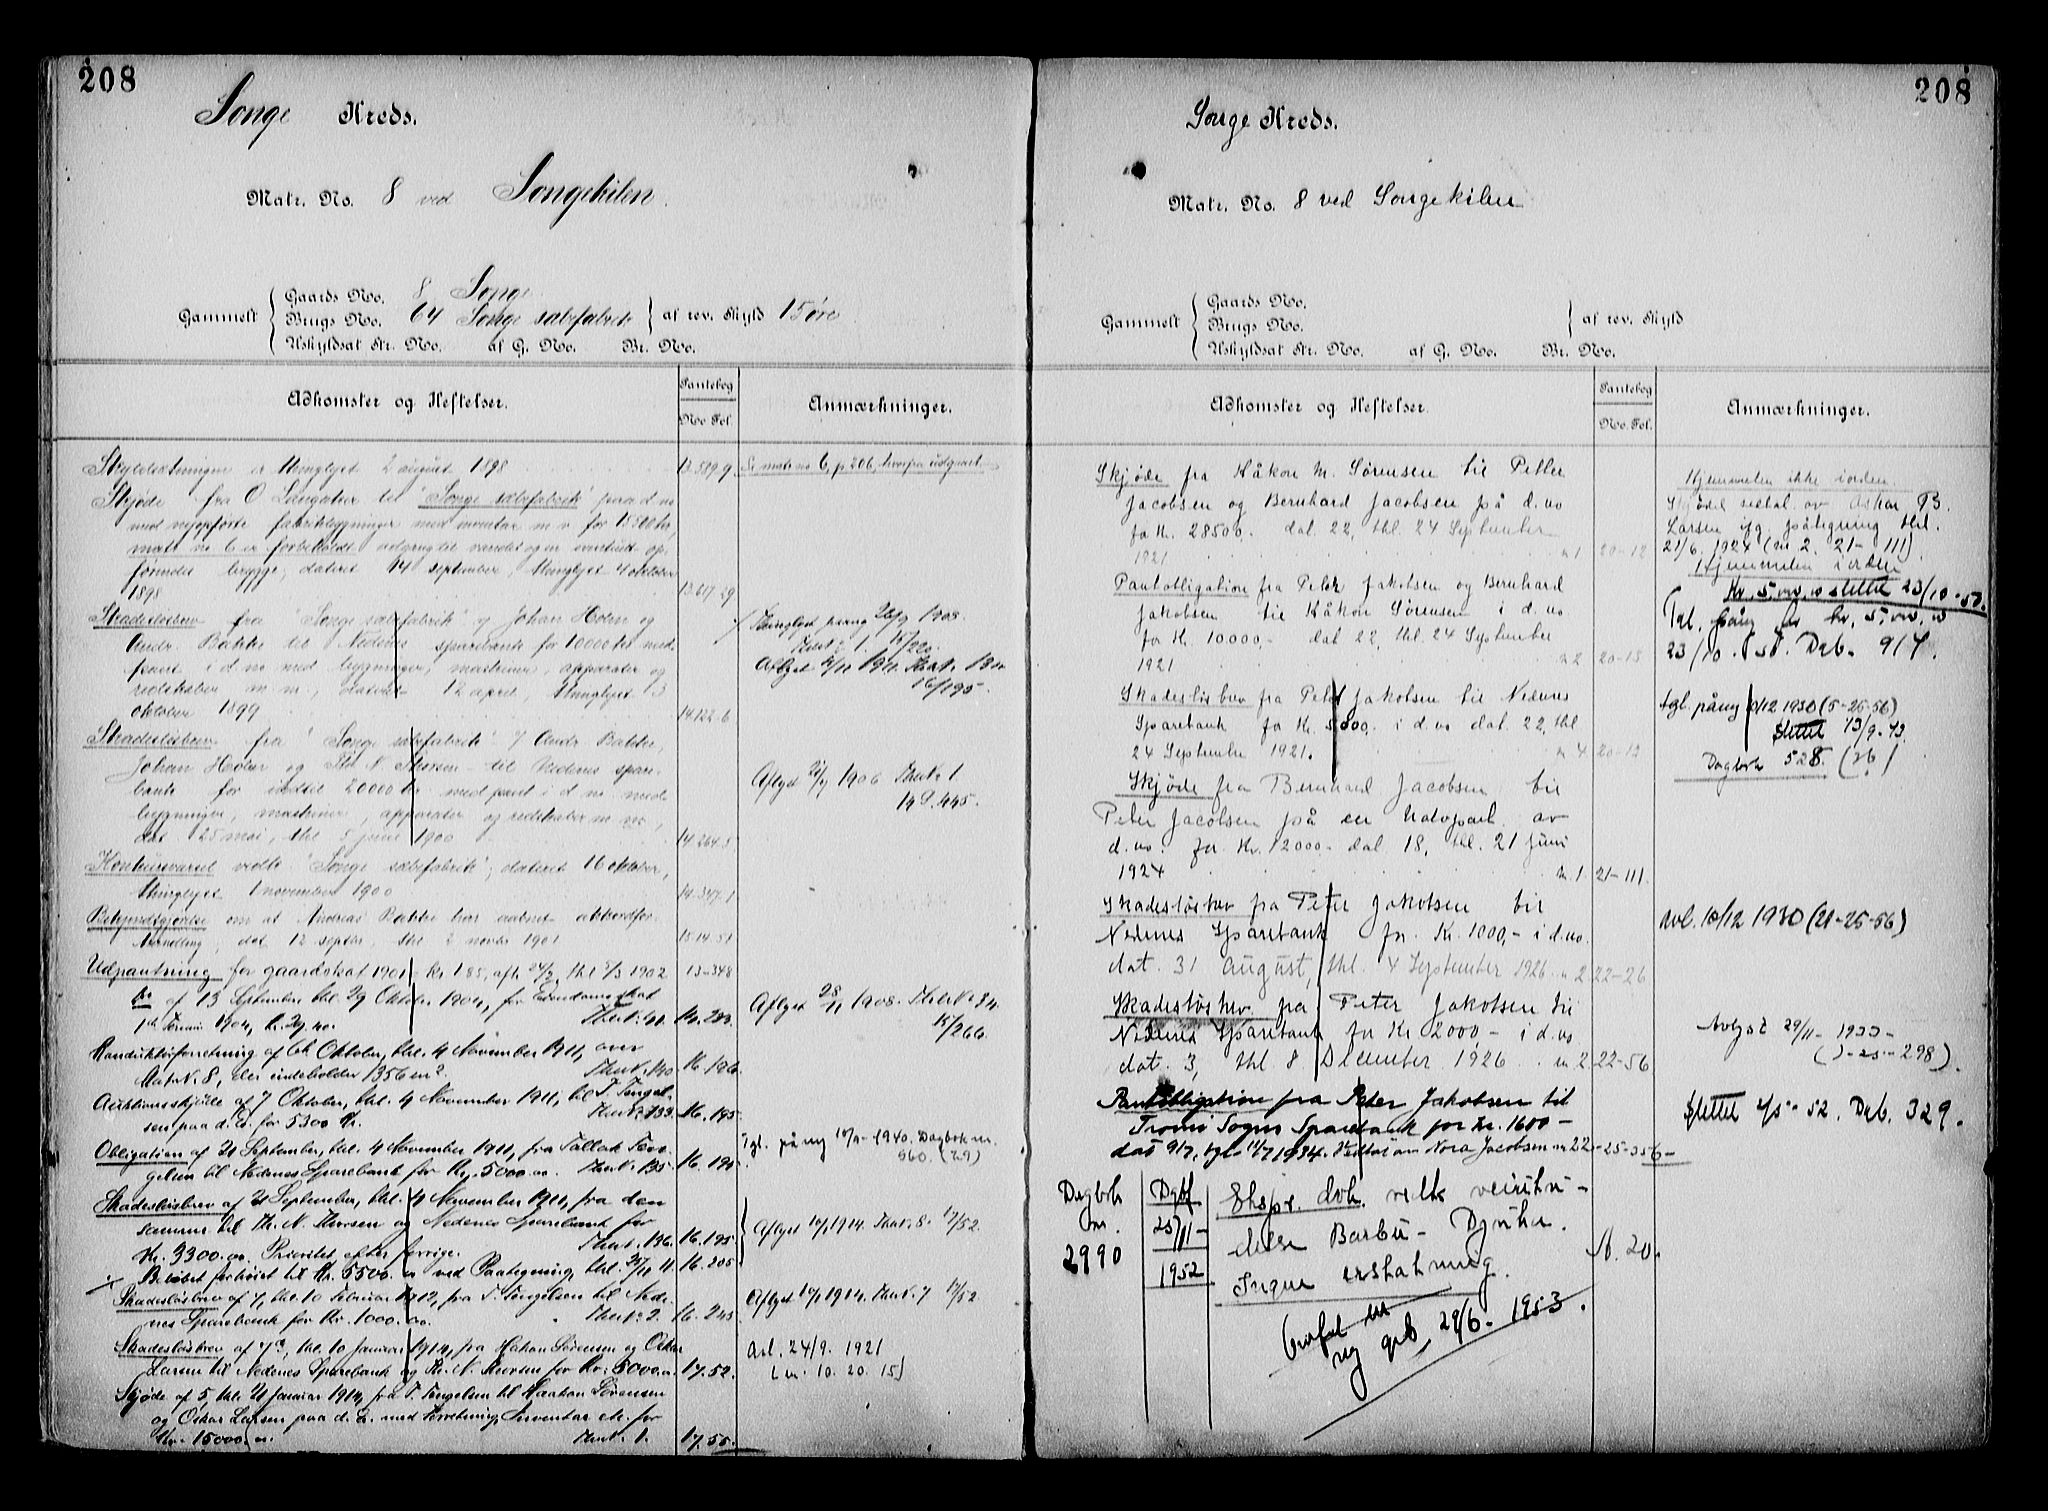 208
Songe Kreds.
Matr. No. 8 ved Songekilen.
Gammelt
Gaards No. 8 Songe
Brugs No. 64 Songe sæbefabrik
af rev. Skyld 15 øre
Uskyldsat Str. No. af G. No. Br. No.
Adkomster og Heftelser.
Pantebog
No. Fol.
Anmærkninger.
Skyldsætningen er thinglyst 2 august 1898
13.589.9.
Se matr no 6, p 206, hvorfra udgaaet.
Skjøde fra O Langater til "Songe sæbefabrik" paa d. no
med nyopførte fabriksbygninger med inventar m v for 18500 kr,
matr no 6 er forbeholdt
brygge; dateret 14 september, thinglyst 4 october
1898
13.617.29
Skadesløsbrev fra "Songe sæbefabrik" v Johan Holm og
Andr. Bakke til Nedenes sparebank for 10000 kr med
pant i d no med bygninger, maskiner, apparater og
redskaber m m, dateret 12 april, thinglyst 13
october 1899
14.122.6
Thinglyst paany 26/9 1908.
Aflyst 4/11 1911.
16/195.
Skadesløsbrev fra "Songe sæbefabrik" v Andr Bakke,
Johan Holm og Th N Thorsen til Nedenes spare-
bank for indtil 20000 kr med pant i d no med
bygninger, maskiner, apparater og redskaber m m,
dat 25 mai, thl 5 juni 1900
14.264.5
Aflyst 1906 Thr No 1
14 S. 445.
Konkursvarsel vedk "Songe sæbefabrik", dateret 16 oktober,
thinglyst 1 november 1900
14.347.1
Bekjendtgjørelse om at Andreas Bakke har aabnet akkordfor-
handling, dat 12 septbr, thl 2 novbr 1901
15.14.51
Udpantning for gaardskat 1901 kr 1.85, afh 24/2, thl 5/3 1902
13-348
do af 13 September thl 29 Oktober 1904, for Eiendomsskat
1ste Termin 1904, kr. 29.40.
14.289.
Aflyst 28/11 1908. Thr No 34
15/266.
Konduktørforretning af 6te Oktober, thl. 4 November 1911, over
Matr No 8, der indeholder 1356 m².
Thr No 140
16.196
Auktionsskjøde af 7 Oktober, thl. 4 November 1911, til T. Tengel-
sen paa d. E. for 5300 Kr.
Thr No 133.
16.195
Obligation af 21 September, thl. 4 November 1911, fra Tallak Ten-
gelsen til Nedenes Sparebank for Kr. 5000.00
Thr No 135
16.195
Tgl. på ny 1940. Dagbok nr.
960. (29)
Skadesløsbrev af 21 September, thl. 4 November 1911, fra den
samme til Th. N. Thorsen og Nedenes Sparebank for
Kr. 3300.00. Prioritet efter forrige.
Thr No 136.
16.195
Beløbet forhøiet til Kr. 5500.00 ved Paategning, thl. 25/11 11.
16.205
Aflyst 10/1 1914. Thr No 8. 17/52.
Skadesløsbrev af 7, thl. 10 Februar 1912, fra T. Tengelsen til Nede-
nes Sparebank for Kr. 1000.00.
Thr No 2.
16.245
Aflyst 10/1 1914. Thr No 7 17/52.
Skadesløsbrev af 7de, thl. 10 Januar 1914, fra Hakon Sørensen og Oskar
Larsen til Nedenes Sparebank og Th. N. Thorsen for Kr. 5000.00
17.52.
Avl. 24/9. 1921
(nr. 10. 20. 15)
Skjøde af 5, thl. 21 Januar 1914, fra T. Tengelsen til Haakon Sørensen
og Oskar Larsen paa d. E. med Forretning, Inventar etc. for
Kr. 15000.00.
Thr No 1.
17.55.
208
Songe Kreds.
Matr. No. 8 ved Songekilen
Gammelt
Gaards No.
Brugs No.
af rev. Skyld
Uskyldsat Str. No. af G. No. Br. No.
Adkomster og Heftelser.
Pantebog
No. Fol.
Anmærkninger.
Skjøde fra Håkon M. Sørensen til Peter
Jacobsen og Bernhard Jacobsen på d. no
for Kr. 28500.- dat. 22, thl. 24 September
1921
n 1 20-12
Hjemmelen ikke iorden.
Skjødet vedtat av Oskar B.
Larsen ifg. påtegning thl.
21/6. 1924 (nr. 2. 21-111).
Hjemmelen iorden
Pantobligation fra Peter Jakobsen og Bernhard
Jakobsen til Håkon Sørensen i d. no
for Kr. 10000,- dat 22, thl. 24 September
1921
n 2 20-13
Kr. 5. slettet 23/10-52.
Tgl. påny for kr. 5.
23/10. 1951. Dab. 917.
Skadesløsbrev fra Peter Jakobsen til Nedenes
Sparebank for Kr. 5000,- i d. no dat. 22, thl
24 September 1921.
n 4 20-13
tgl. påny 10/12 1930 (5-25-56)
Slettet 13/9-43.
Dagbok 528. (26)
Skjøde fra Bernhard Jacobsen til
Peter Jacobsen på en halvpart av
d. no. for Kr. 12000- dat. 18, thl. 21 juni
1924
n. 1. 21-111.
Skadesløsbrev fra Peter Jakobsen til
Nedenes Sparebank for Kr. 1000,- i d. no.
dat. 31 august, thl. 4 September 1926
n 2 22-26
Avl. 10/12 1930 (21-25-56)
Skadesløsbrev fra Peter Jakobsen til
Nedenes Sparebank for Kr 2000,- i d. no
dat. 3, thl. 8 December 1926
n 2 22-56
Avlyst 29/11-1933-
298).
Pantobligation fra Peter Jakobsen til
Tromø Sogns Sparebank for kr. 1600-
dat 9/7, tgl. 11/7 1934. Vedtat av Nora Jacobsen nr 22-25-356-
Slettet 4/5-52. Dab. 329.
Dagbok
nr.
2990
Dgbf
25/11-
1952
Ekspr. dok. vedk veiutvi-
delse Barbu - Dyvika.
Ingen erstatning.
A. 20.
29/6- 1953.